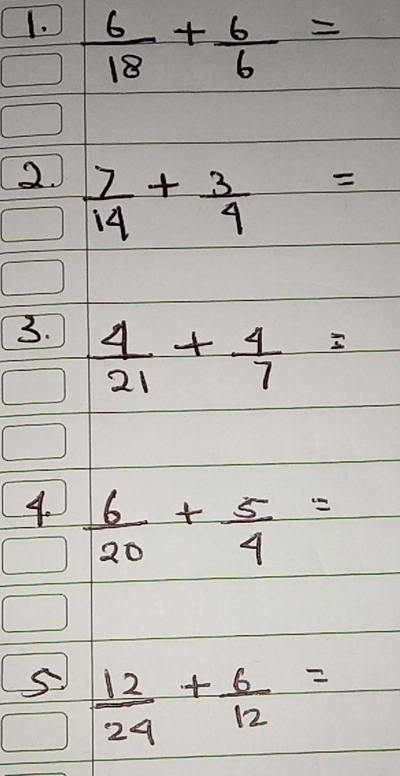 1. 6/18 + 6/6 =
2. 7/14 + 3/4 =
3. 4/21 + 4/7 =
4. 6/20 + 5/4 =
5. 12/24 + 6/12 =